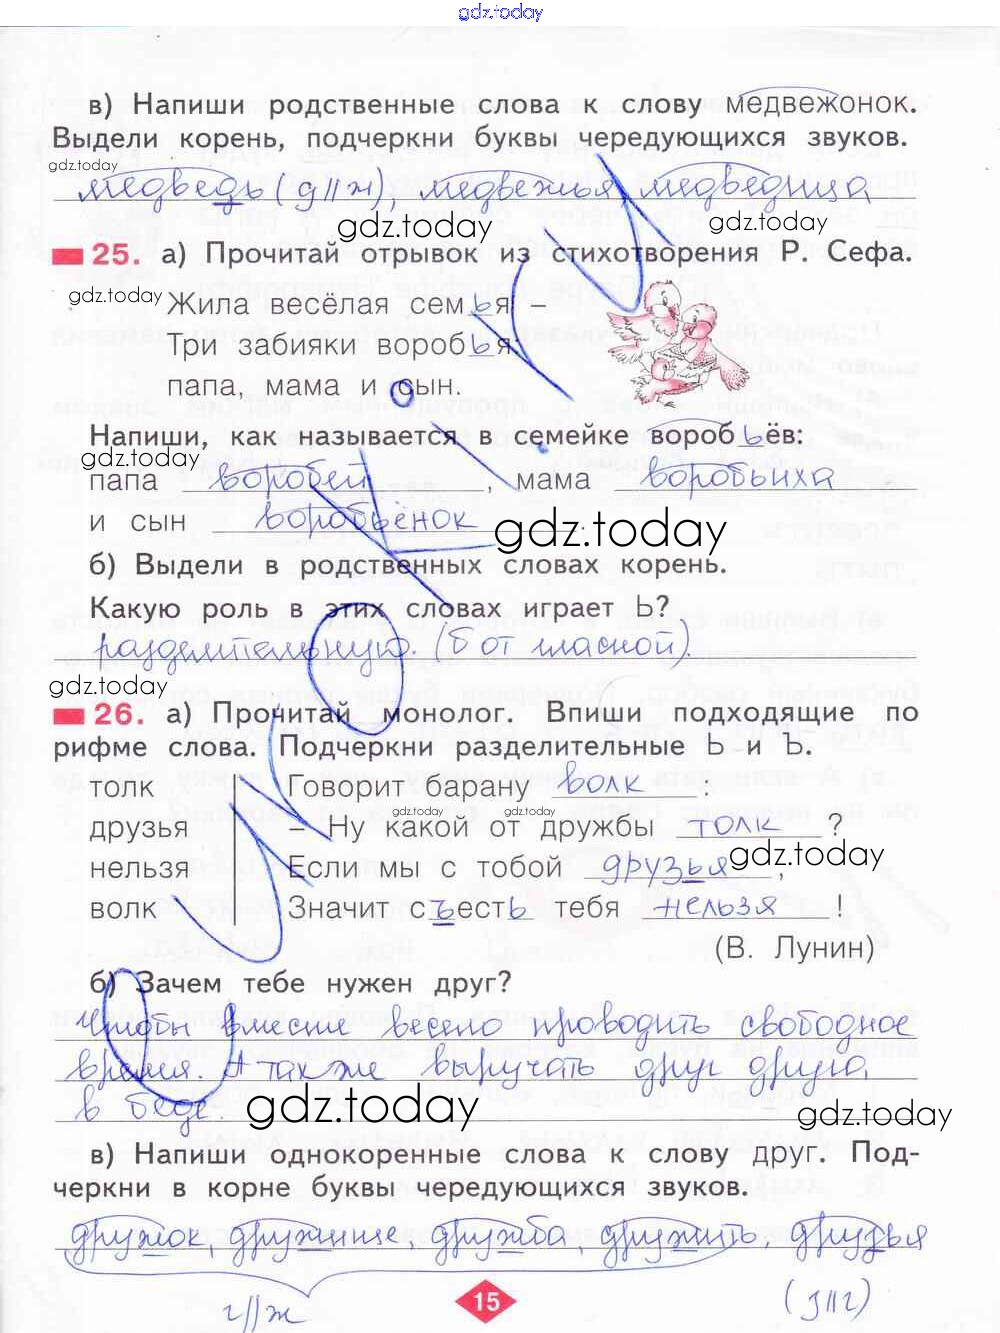 gdz.today
в) Напиши родственные слова к слову медвежонок.
Выдели корень, подчеркни буквы чередующихся звуков.
gdz.today
медведь (д||ж), медвежья, медведица
gdz.today gdz.today
25. а) Прочитай отрывок из стихотворения Р. Сефа.
gdz.today
Жила весёлая семья –
Три забияки воробья
папа, мама и сын.
Напиши, как называется в семейке воробьёв:
gdz.today
папа воробей, мама воробьиха
и сын воробьёнок.
gdz.today
б) Выдели в родственных словах корень.
Какую роль в этих словах играет Ь?
разделительную. (б от гласной)
gdz.today
26. а) Прочитай монолог. Впиши подходящие по
рифме слова. Подчеркни разделительные Ь и Ъ.
толк Говорит барану волк :
gdz.today gdz.today
друзья – Ну какой от дружбы толк ?
gdz.today
нельзя Если мы с тобой друзья ,
волк Значит съесть тебя нельзя !
(В. Лунин)
б) Зачем тебе нужен друг?
Чтобы вместе весело проводить свободное
время. А также выручать друг друга
в беде.
gdz.today gdz.today
в) Напиши однокоренные слова к слову друг. Под-
черкни в корне буквы чередующихся звуков.
дружок, дружище, дружба, дружить, друзья
г||ж 15 (з||г)